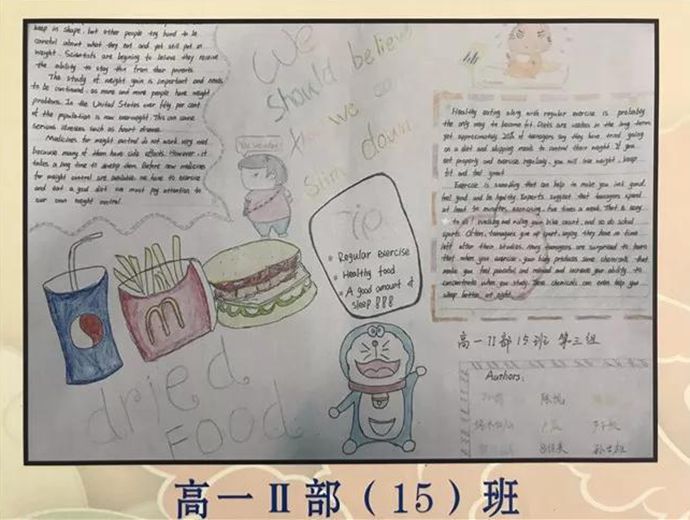 keep in shape, but other people try hard to be
careful about what they eat and yet still put on
weight. Scientists are begining to believe they receive
the ability to stay thin from their parents.
The study of weight gain is important and needs
to be continued, as more and more people have weight
problems. In the United States over fifty per cent
of the population is now overweight. This can cause
serious illnesses such as heart disease.
Medicines for weight control do not work very well
because many of them have side effects. However, it
takes a long time to develop them. Before new medicines
for weight control are available we have to exercise
and eat a good diet we must pay attention to
our own weight control.
We
should believe
we
slim down
Tip
Regular exercise
Healthy food
A good amount of
sleep!!!
Healthy eating along with regular exercise is probably
the only way to become fit. Diets are useless in the long term
yet approximately 20% of teenagers say they have tried going
on a diet and skipping meals to control their weight. If you
eat properly and exercise regularly, you will lose weight, keep
fit and feel great.
Exercise is something that can help to make you look good,
feel good and be healthy. Experts suggest that teenagers spend
at least 30 minutes exercising, five times a week. That is easy
to do! Walking and riding your bike count, and so do school
sports. Often, teenagers give up sport, saying they have no time
left after their studies. Many teenagers are surprised to learn
that when you exercise, your body produces some chemicals that
make you feel peaceful and relaxed and increase your ability to
concentrate when you study. These chemicals can even help you
sleep better at night.
M
dried
FOOD
高一II部15班 第三组
Authors:
高一Ⅱ部（15）班